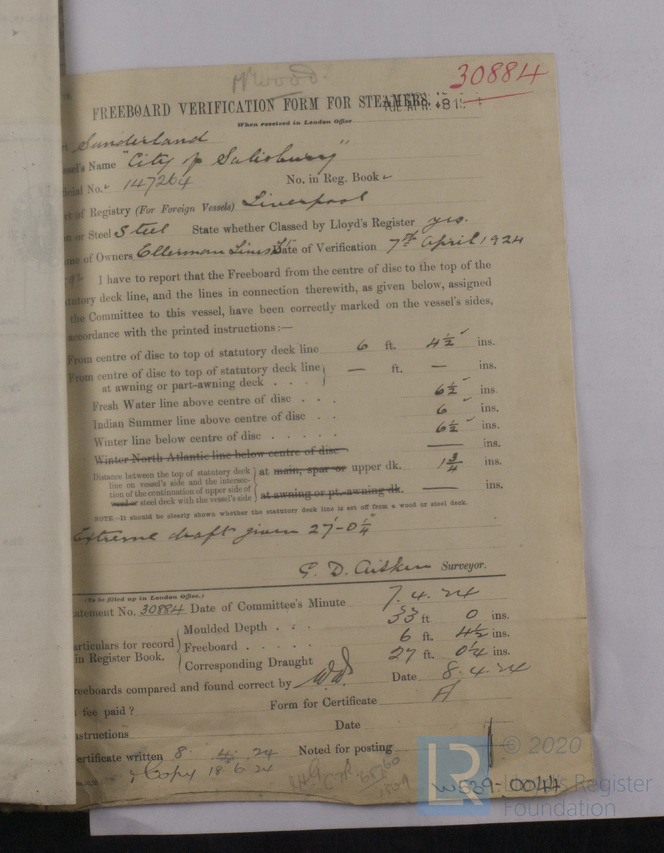 30884
FREEBOARD VERIFICATION FORM FOR STEAMERS.
When received in London Office
Sunderland
Name "City of Salisbury"
No. 147264 No. in Reg. Book
of Registry (For Foreign Vessels) Liverpool
or Steel Steel State whether Classed by Lloyd's Register yes.
of Owners Ellerman Lines Ld Date of Verification 7th April 1924
I have to report that the Freeboard from the centre of disc to the top of the
deck line, and the lines in connection therewith, as given below, assigned
the Committee to this vessel, have been correctly marked on the vessel's sides,
accordance with the printed instructions:—
From centre of disc to top of statutory deck line 6 ft. 4½ ins.
From centre of disc to top of statutory deck line
at awning or part-awning deck . . . — ft. — ins.
Fresh Water line above centre of disc . . . 6½ ins.
Indian Summer line above centre of disc . . 6 ins.
Winter line below centre of disc . . . . . 6½ ins.
Winter North Atlantic line below centre of disc — ins.
Distance between the top of statutory deck
line on vessel's side and the intersec-
tion of the continuation of upper side of
wood or steel deck with the vessel's side
at main, spar or upper dk. 1¾ ins.
at awning or pt. awning dk. — ins.
NOTE.—It should be clearly shown whether the statutory deck line is set off from a wood or steel deck.
Extreme draft given 27'-0¼"
G. D. Aitken Surveyor.
(To be filled up in London Office.)
Statement No. 30884 Date of Committee's Minute 7.4.24
Particulars for record
in Register Book.
Moulded Depth . . . 33 ft 0 ins.
Freeboard . . . . . 6 ft. 4½ ins.
Corresponding Draught 27 ft. 0¼ ins.
Freeboards compared and found correct by Date 8.4.24
fee paid? Form for Certificate A
Instructions Date
Certificate written 8. 4. 24 Noted for posting
Copy 18.6.24
LR © 2020
Lloyd's Register
Foundation
W539-0044